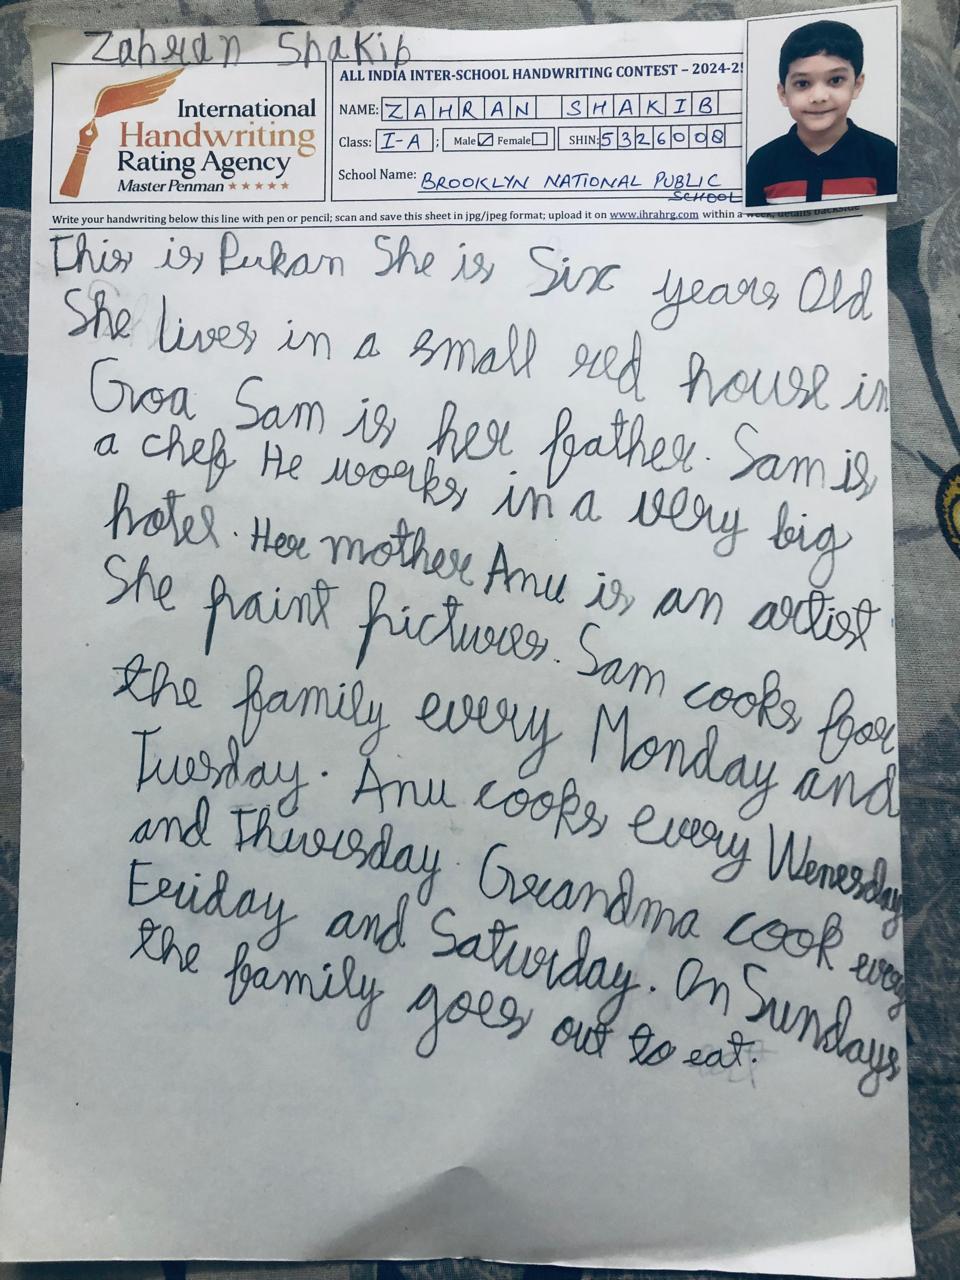 Zahran Shakib
International
Handwriting
Rating Agency
Master Penman ★★★★★
ALL INDIA INTER-SCHOOL HANDWRITING CONTEST – 2024-25
NAME: ZAHRAN SHAKIB
Class: I-A ; Male ☑ Female ☐ SHIN: 5326008
School Name: BROOKLYN NATIONAL PUBLIC
SCHOOL
Write your handwriting below this line with pen or pencil; scan and save this sheet in jpg/jpeg format; upload it on www.ihrahrg.com within a week, details backside
This is Pukan She is Six years Old
She lives in a small red house in
Goa Sam is her father. Sam is
a chef He works in a very big
hotel. Her mother Anu is an artist
She paint pictures. Sam cooks for
the family every Monday and
Tuesday. Anu cooks every Wenesday
and Thursday. Grandma cook every
Friday and Saturday. On Sundays
the family goes out to eat.